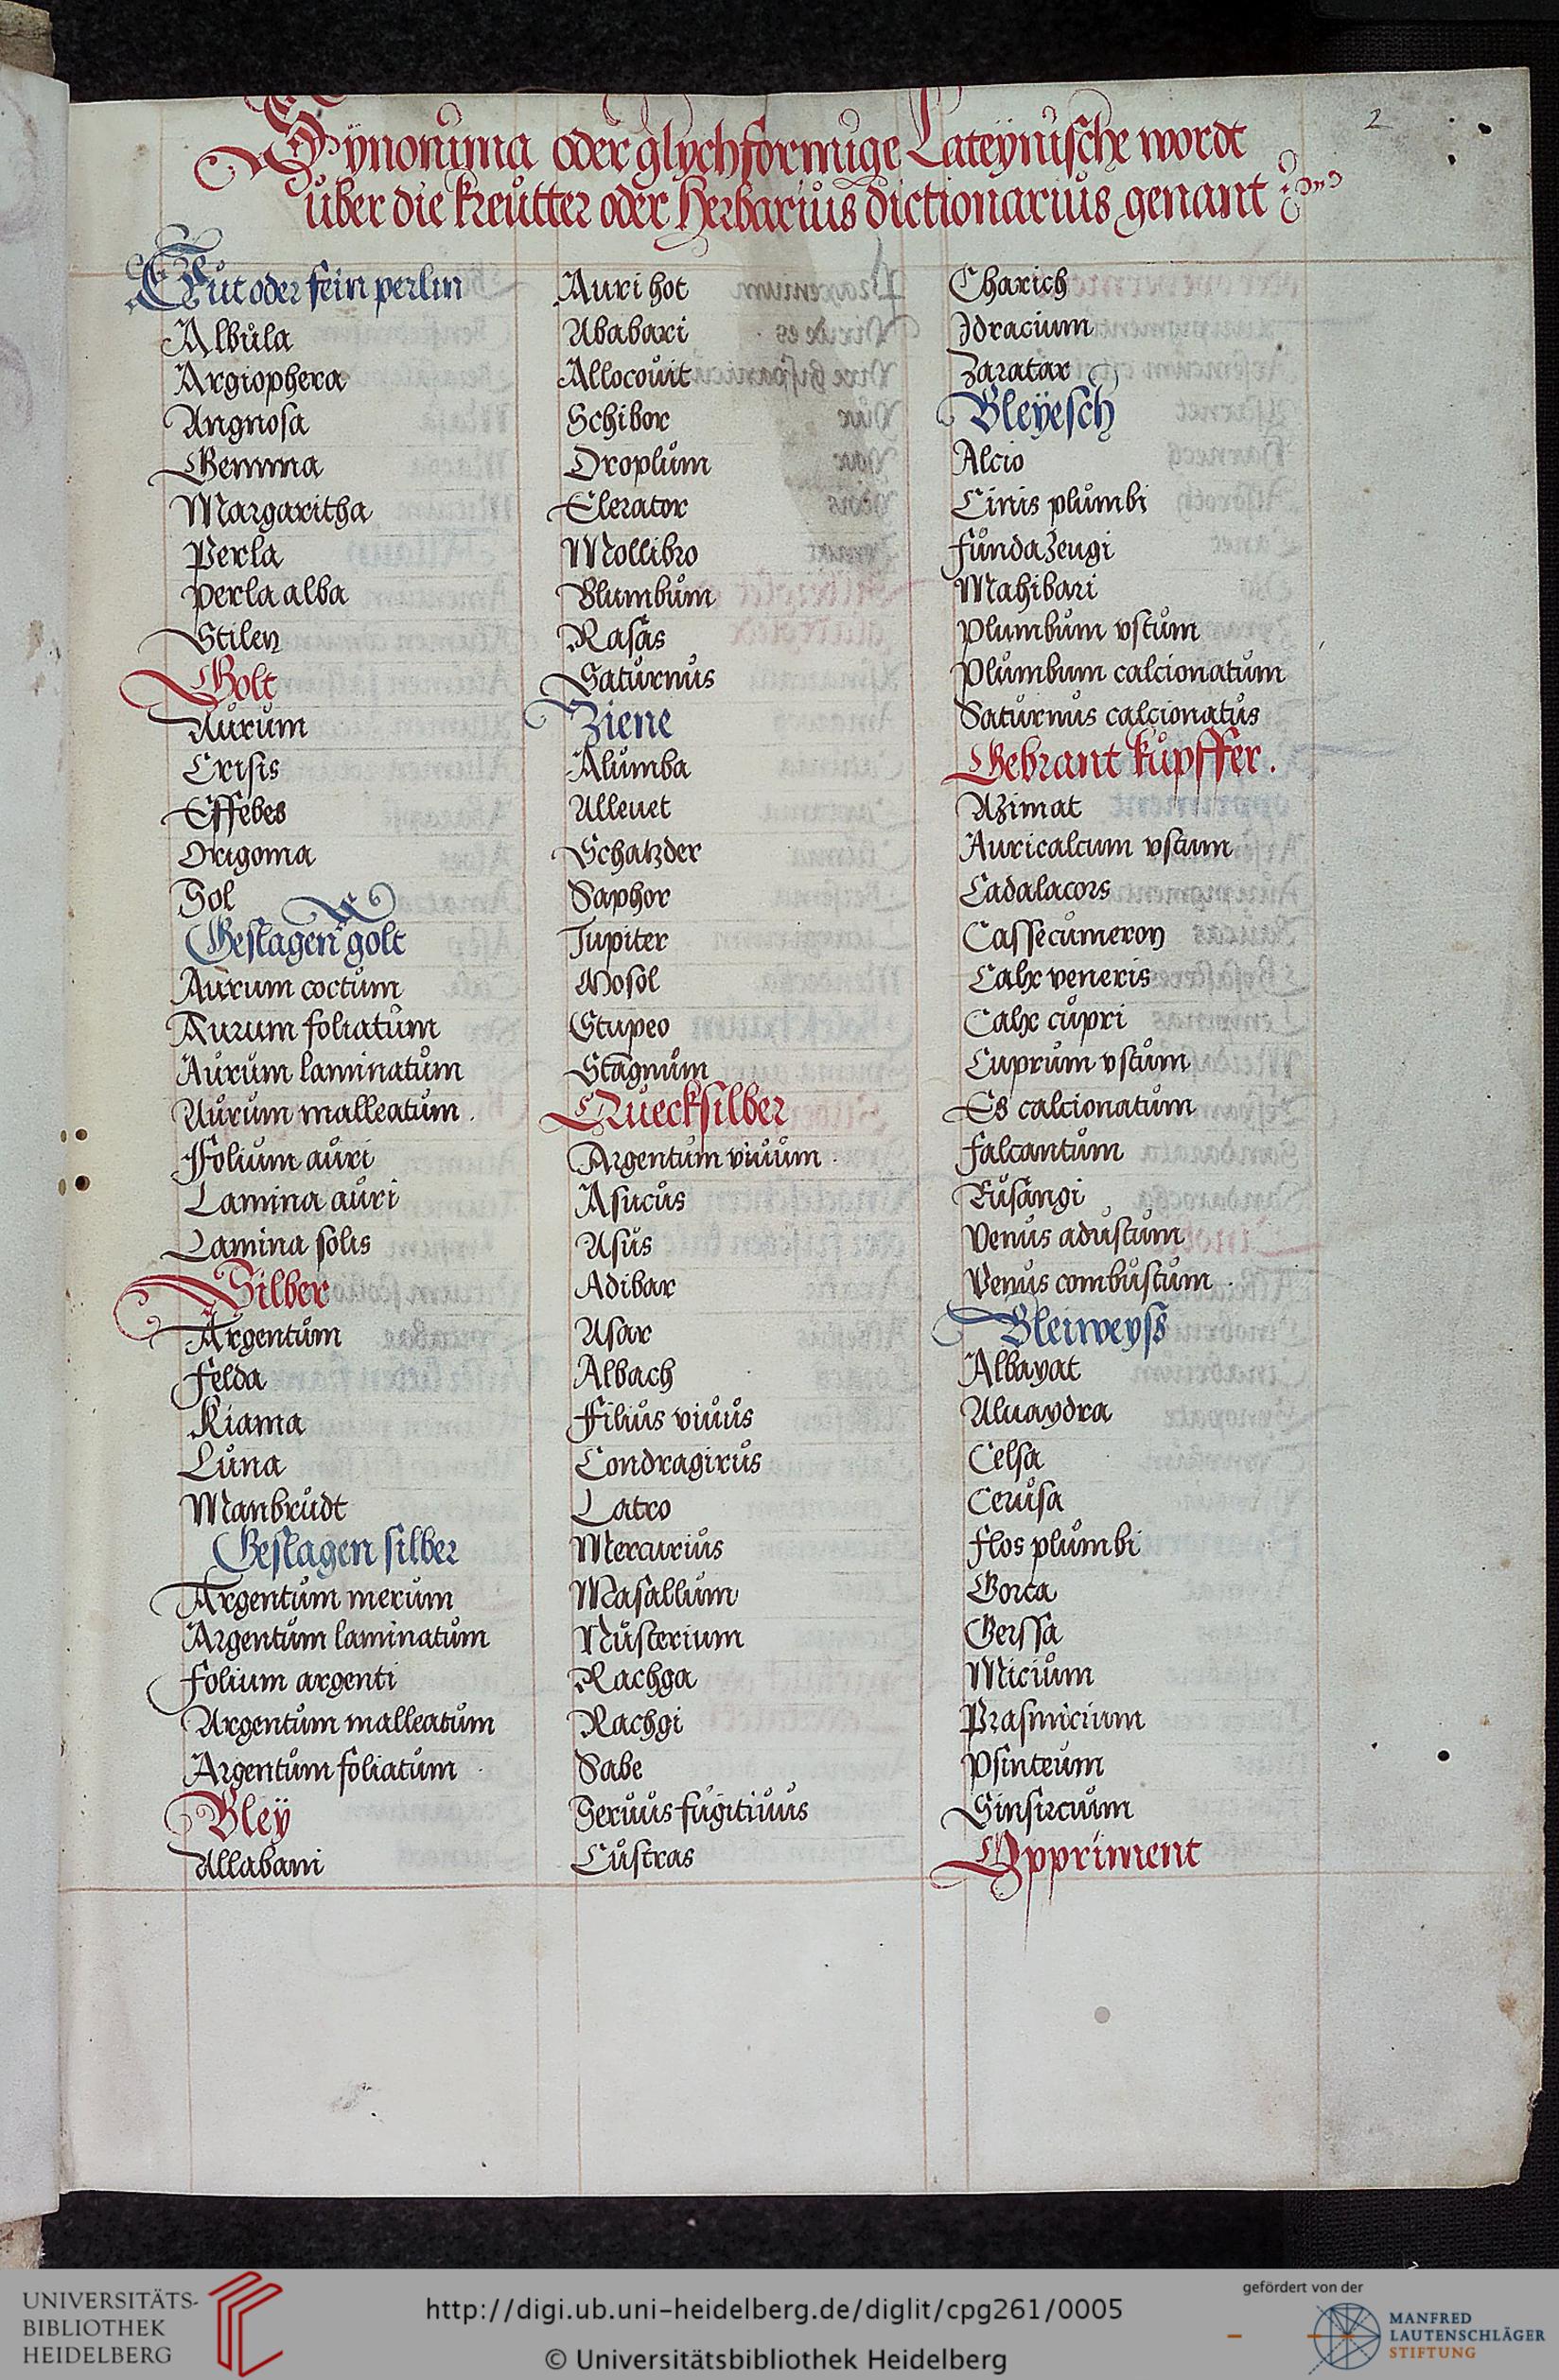 2
Synonima oder glychformige Lateynische wordt
über die kreütter oder Herbarius dictionarius genant
Güt oder fein perlin
Albůla
Argiophera
Angnosa
Gemma
Margaritha
Perla
perla alba
Stilen
Golt
Aůrům
Crisis
Effebes
Origoma
Sol
Geslagen golt
Aůrum coctům
Aurum foliatům
Aůrům laminatům
Aůrum malleatům
Folium aůri
Lamina aůri
Lamina solis
Silber
Argentům
felda
Kiama
Lůna
Manbrůdt
Geslagen silber
Argentům merům
Argentům laminatům
folium argenti
Argentům malleatům
Argentům foliatům
Bleÿ
Allabani
Auri hot
Ababari
Allocoůit
Schibor
Oroplům
Elerator
Mollibro
Blumbům
Rasas
Satůrnůs
Ziene
Alůmba
Alleuet
Schatzder
Saphor
Jupiter
Mosol
Stupeo
Stagnům
Quecksilber
Argentům viůům
Asucůs
Asůs
Adibar
Asar
Albach
Filiůs viůůs
Condragirůs
Latro
Mercuriůs
Masallům
Nůsterium
Rachga
Rachgi
Sabe
Serůůs fůgitiůůs
Cůstras
Charich
Idracium
Zaratar
Bleÿesch
Alcio
Cinis plůmbi
fůnda zeugi
Mahibari
plumbům vstům
plůmbum calcionatům
Satůrnůs calcionatůs
Gebrant kupffer.
Azimat
Auricalcum vstum
Cadalacors
Cassecůmeron
Calx veneris
Calx cůpri
Cuprům vstům
Es calcionatům
falcantům
Růsangi
Venůs adůstům
Venůs combůstům
Bleiweyß
Albayat
Aluaydra
Celsa
Cerůsa
flos plůmbi
Gorca
Gerssa
Miciům
Prasmicium
psinteům
Sinsircům
Oppriment
UNIVERSITÄTS-
BIBLIOTHEK
HEIDELBERG
http://digi.ub.uni-heidelberg.de/diglit/cpg261/0005
© Universitätsbibliothek Heidelberg
gefördert von der
MANFRED
LAUTENSCHLÄGER
STIFTUNG